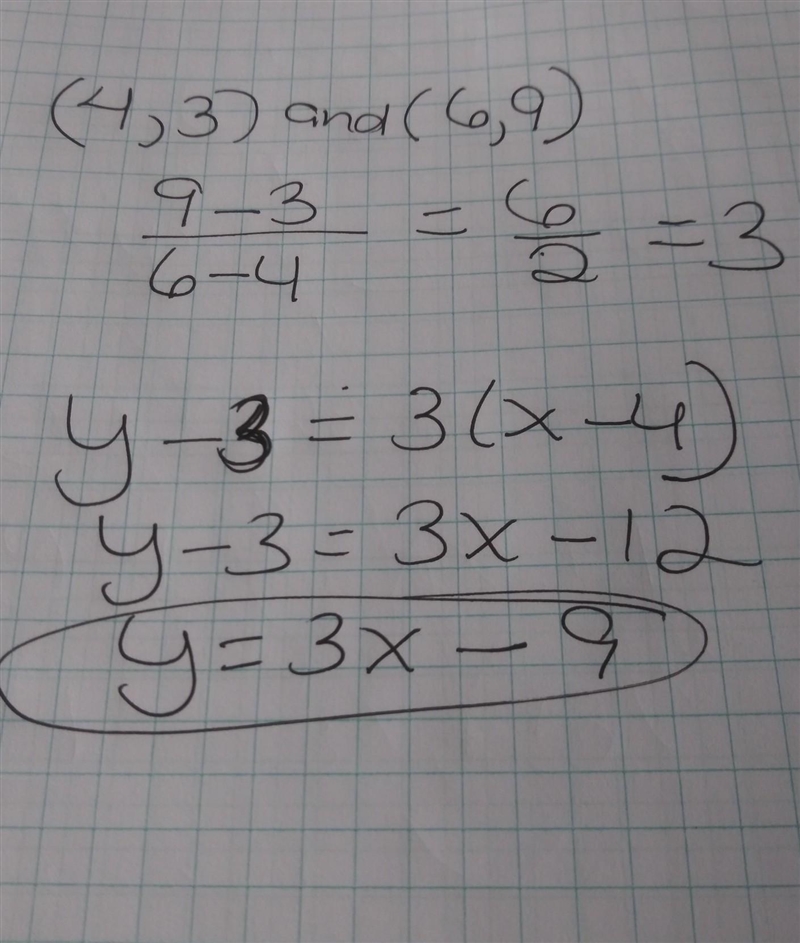 (4,3) and (6,9)
9-3/6-4 = 6/2 = 3
y-3 = 3(x-4)
y-3 = 3x-12
y = 3x - 9